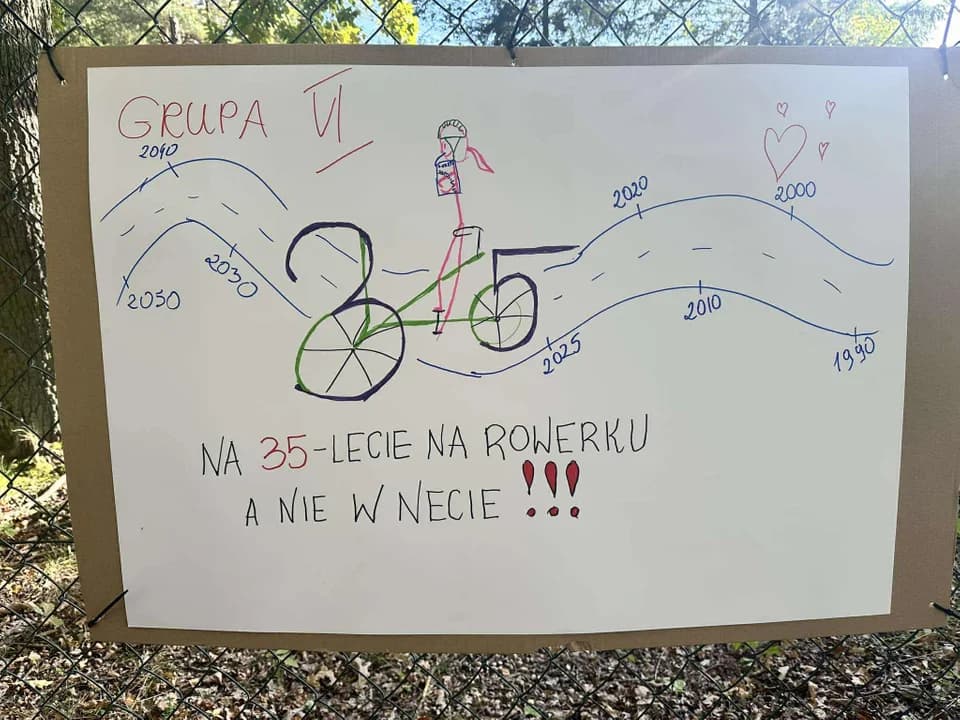 GRUPA VI
2040
2030
2050
35
2020
2000
2010
2025
1990
NA 35-LECIE NA ROWERKU
A NIE W NECIE !!!